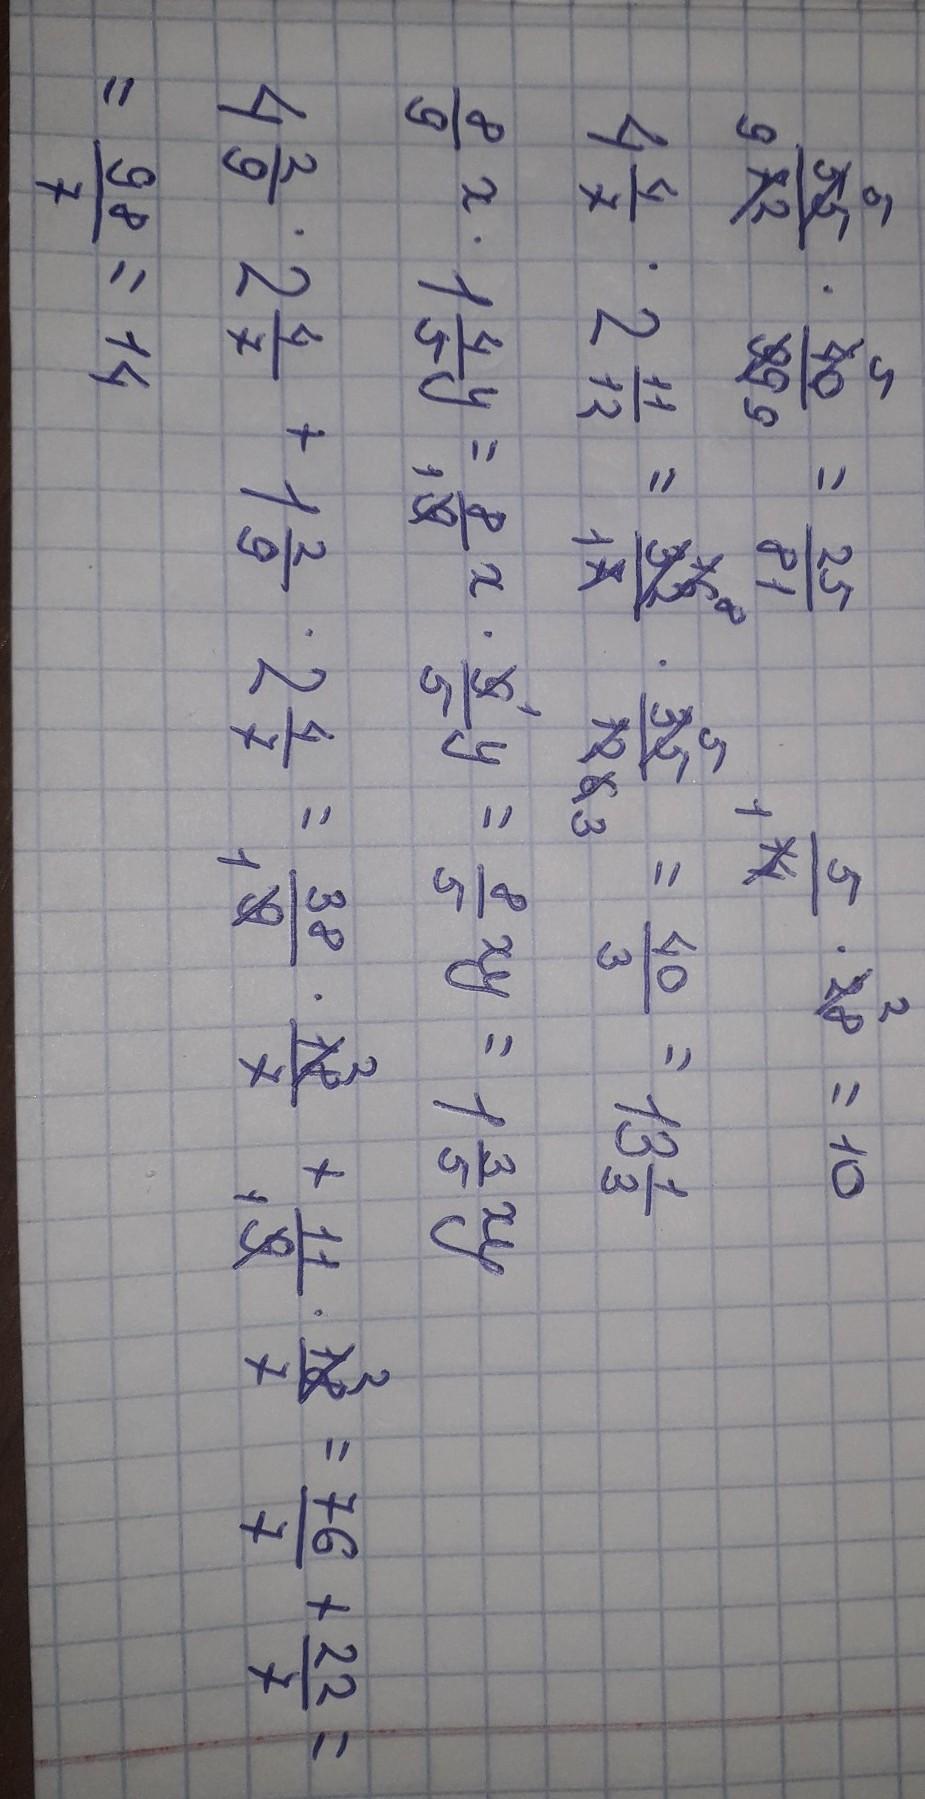 35/72 · 40/63 = 25/81   5/14 · 28 = 10
4 4/7 · 2 11/12 = 32/7 · 35/12 = 40/3 = 13 1/3
8/9 x · 1 4/5 y = 8/9 x · 9/5 y = 8/5 xy = 1 3/5 xy
4 2/9 · 2 4/7 + 1 2/9 · 2 4/7 = 38/9 · 18/7 + 11/9 · 18/7 = 76/7 + 22/7 =
= 98/7 = 14